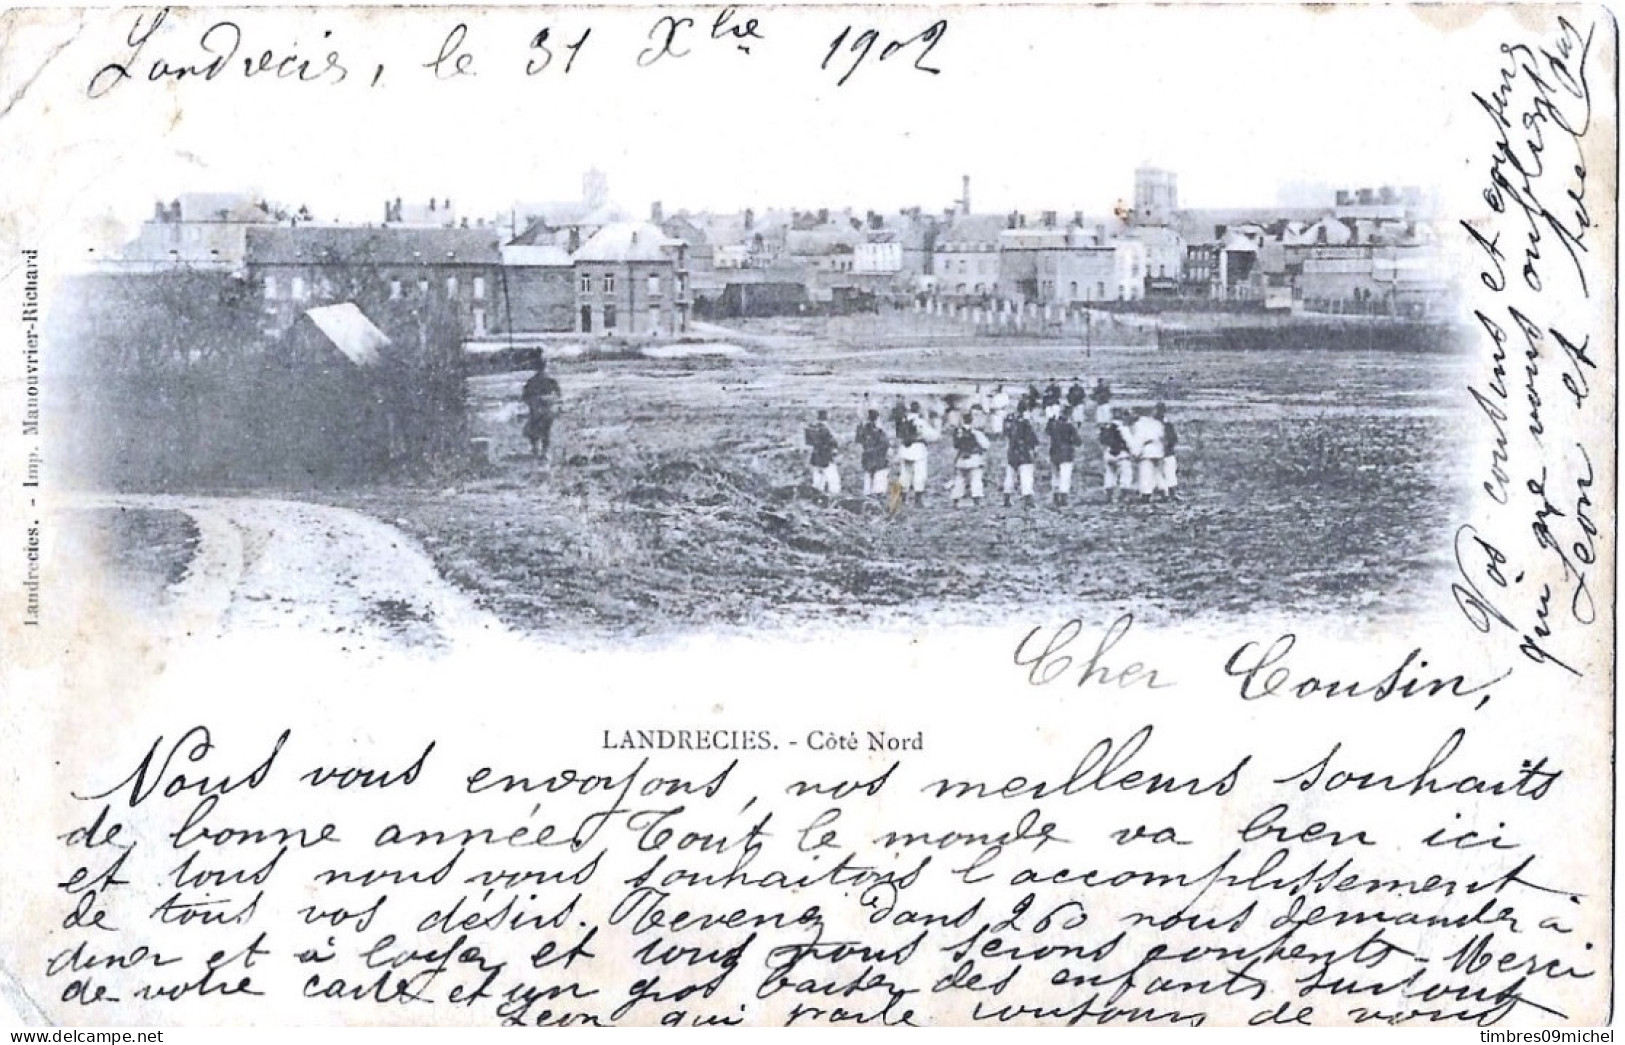 Landrecies, le 31 Xbre 1902
Landrecies. - Imp. Manouvrier-Richard
LANDRECIES. - Côté Nord
Cher Cousin,
Nous vous envoyons, nos meilleurs souhaits
de bonne année. Tout le monde va bien ici
et tous nous vous souhaitons l'accomplissement
de tous vos désirs. Revenez dans 260 nous demander à
diner et à loger et tous nous serons contents. Merci
de votre carte et un gros baiser des enfants surtout
Léon qui parle toujours de vous
Vos cousins et cousines
qui ne vous oublient pas
Léon et